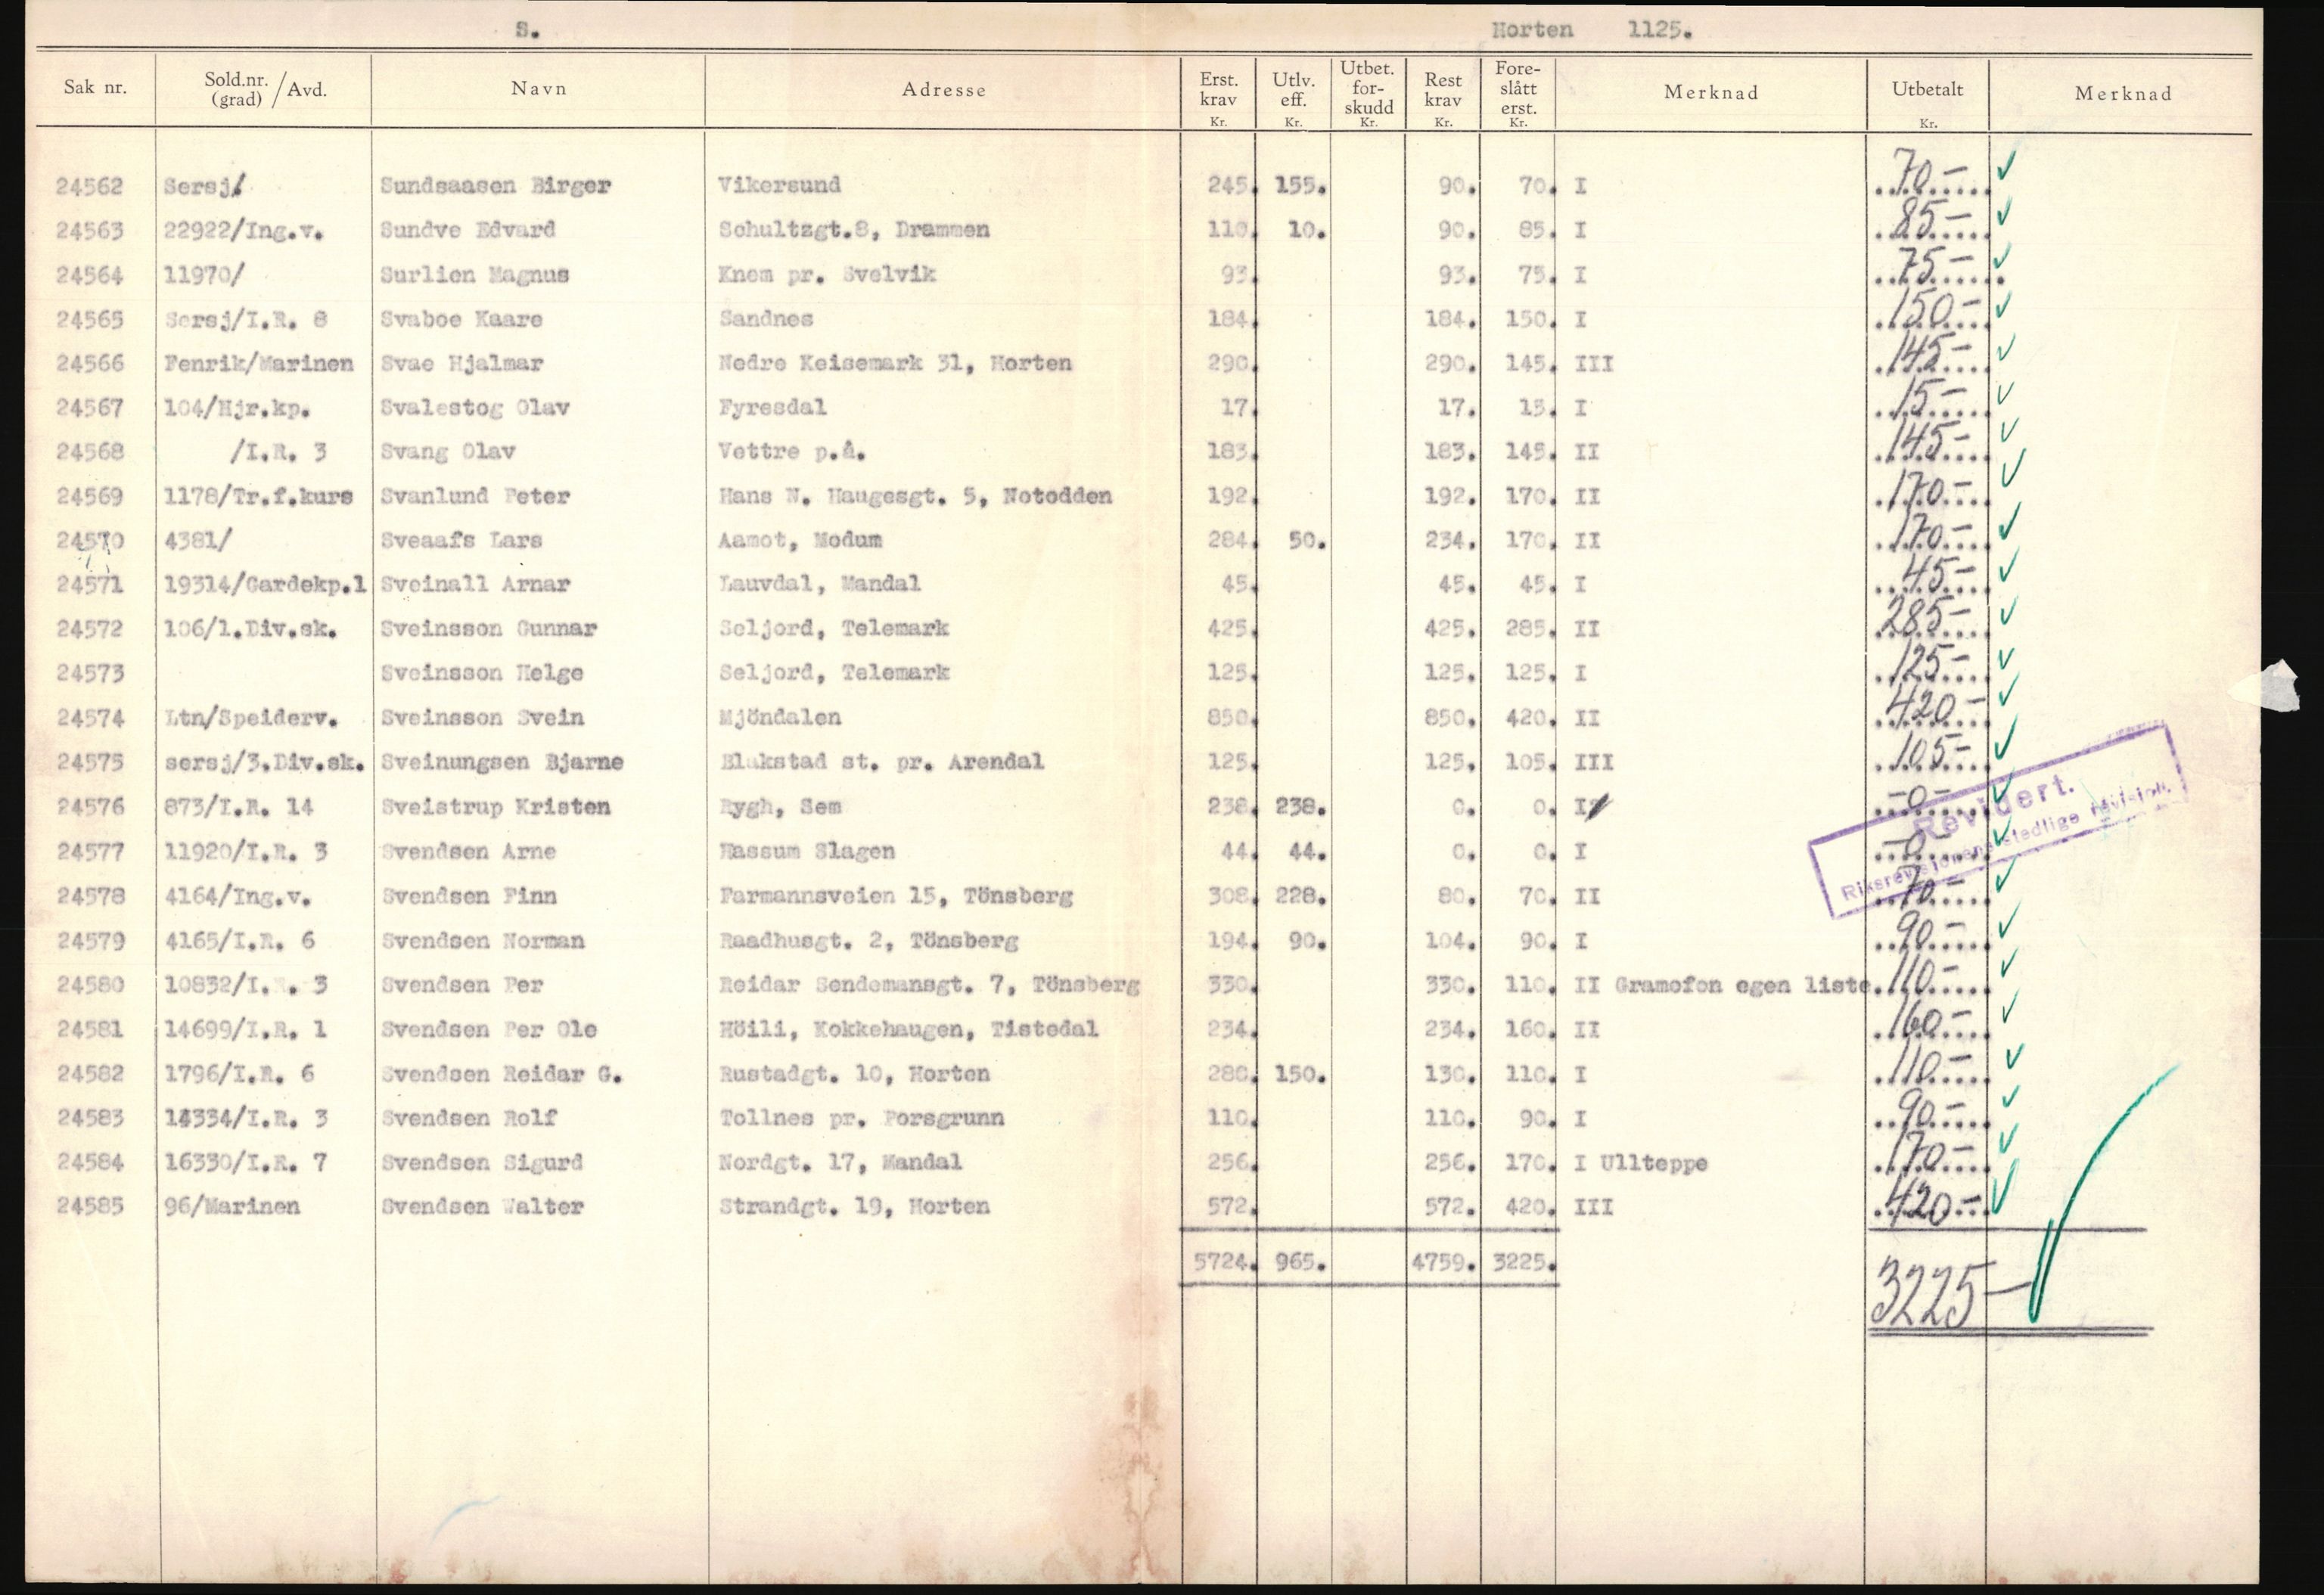 S. Horten 1125.
Sak nr. Sold.nr. (grad) / Avd. Navn Adresse Erst. krav Kr. Utlv. eff. Kr. Utbet. for- skudd Kr. Rest krav Kr. Fore- slått erst. Kr. Merknad Utbetalt Kr. Merknad
24562 Sersj/ Sundsaasen Birger Vikersund 245. 155. 90. 70. I 70.-
24563 22922/Ing.v. Sundve Edvard Schultzgt.8, Drammen 110. 10. 90. 85. I 85-
24564 11970/ Surlien Magnus Knem pr. Svelvik 93. 93. 75. I 75-
24565 Sersj/I.R. 8 Svaboe Kaare Sandnes 184. 184. 150. I 150-
24566 Fenrik/Marinen Svae Hjalmar Nedre Keisemark 31, Horten 290. 290. 145. III 145-
24567 104/Hjr.kp. Svalestog Olav Fyresdal 17. 17. 15. I 15-
24568 /I.R. 3 Svang Olav Vettre p.å. 183. 183. 145. II 145-
24569 1178/Tr.f.kurs Svanlund Peter Hans N. Haugesgt. 5, Notodden 192. 192. 170. II 170.-
24570 4381/ Sveaafs Lars Aamot, Modum 284. 50. 234. 170. II 170-
24571 19314/Gardekp.1 Sveinall Arnar Lauvdal, Mandal 45. 45. 45. I 45-
24572 106/1.Div.sk. Sveinsson Gunnar Seljord, Telemark 425. 425. 285. II 285-
24573 Sveinsson Helge Seljord, Telemark 125. 125. 125. I 125-
24574 Ltn/Speiderv. Sveinsson Svein Mjöndalen 850. 850. 420. II 420-
24575 sersj/3.Div.sk. Sveinungsen Bjarne Blakstad st. pr. Arendal 125. 125. 105. III 105-
24576 873/I.R. 14 Sveistrup Kristen Rygh, Sem 238. 238. 0. 0. I -0-
24577 11920/I.R. 3 Svendsen Arne Hassum Slagen 44. 44. 0. 0. I -0-
24578 4164/Ing.v. Svendsen Finn Farmannsveien 15, Tönsberg 308. 228. 80. 70. II 70-
24579 4165/I.R. 6 Svendsen Norman Raadhusgt. 2, Tönsberg 194. 90. 104. 90. I 90-
24580 10832/I.R. 3 Svendsen Per Reidar Sendemansgt. 7, Tönsberg 330. 330. 110. II Gramofon egen liste 110-
24581 14699/I.R. 1 Svendsen Per Ole Höili, Kokkehaugen, Tistedal 234. 234. 160. II 160-
24582 1796/I.R. 6 Svendsen Reidar G. Rustadgt. 10, Horten 280. 150. 130. 110. I 110-
24583 14334/I.R. 3 Svendsen Rolf Tollnes pr. Porsgrunn 110. 110. 90. I 90-
24584 16330/I.R. 7 Svendsen Sigurd Nordgt. 17, Mandal 256. 256. 170. I Ullteppe 170-
24585 96/Marinen Svendsen Walter Strandgt. 19, Horten 572. 572. 420. III 420-
5724. 965. 4759. 3225.
3225-
Revidert.
Riksrevisjonens stedlige revisjon.